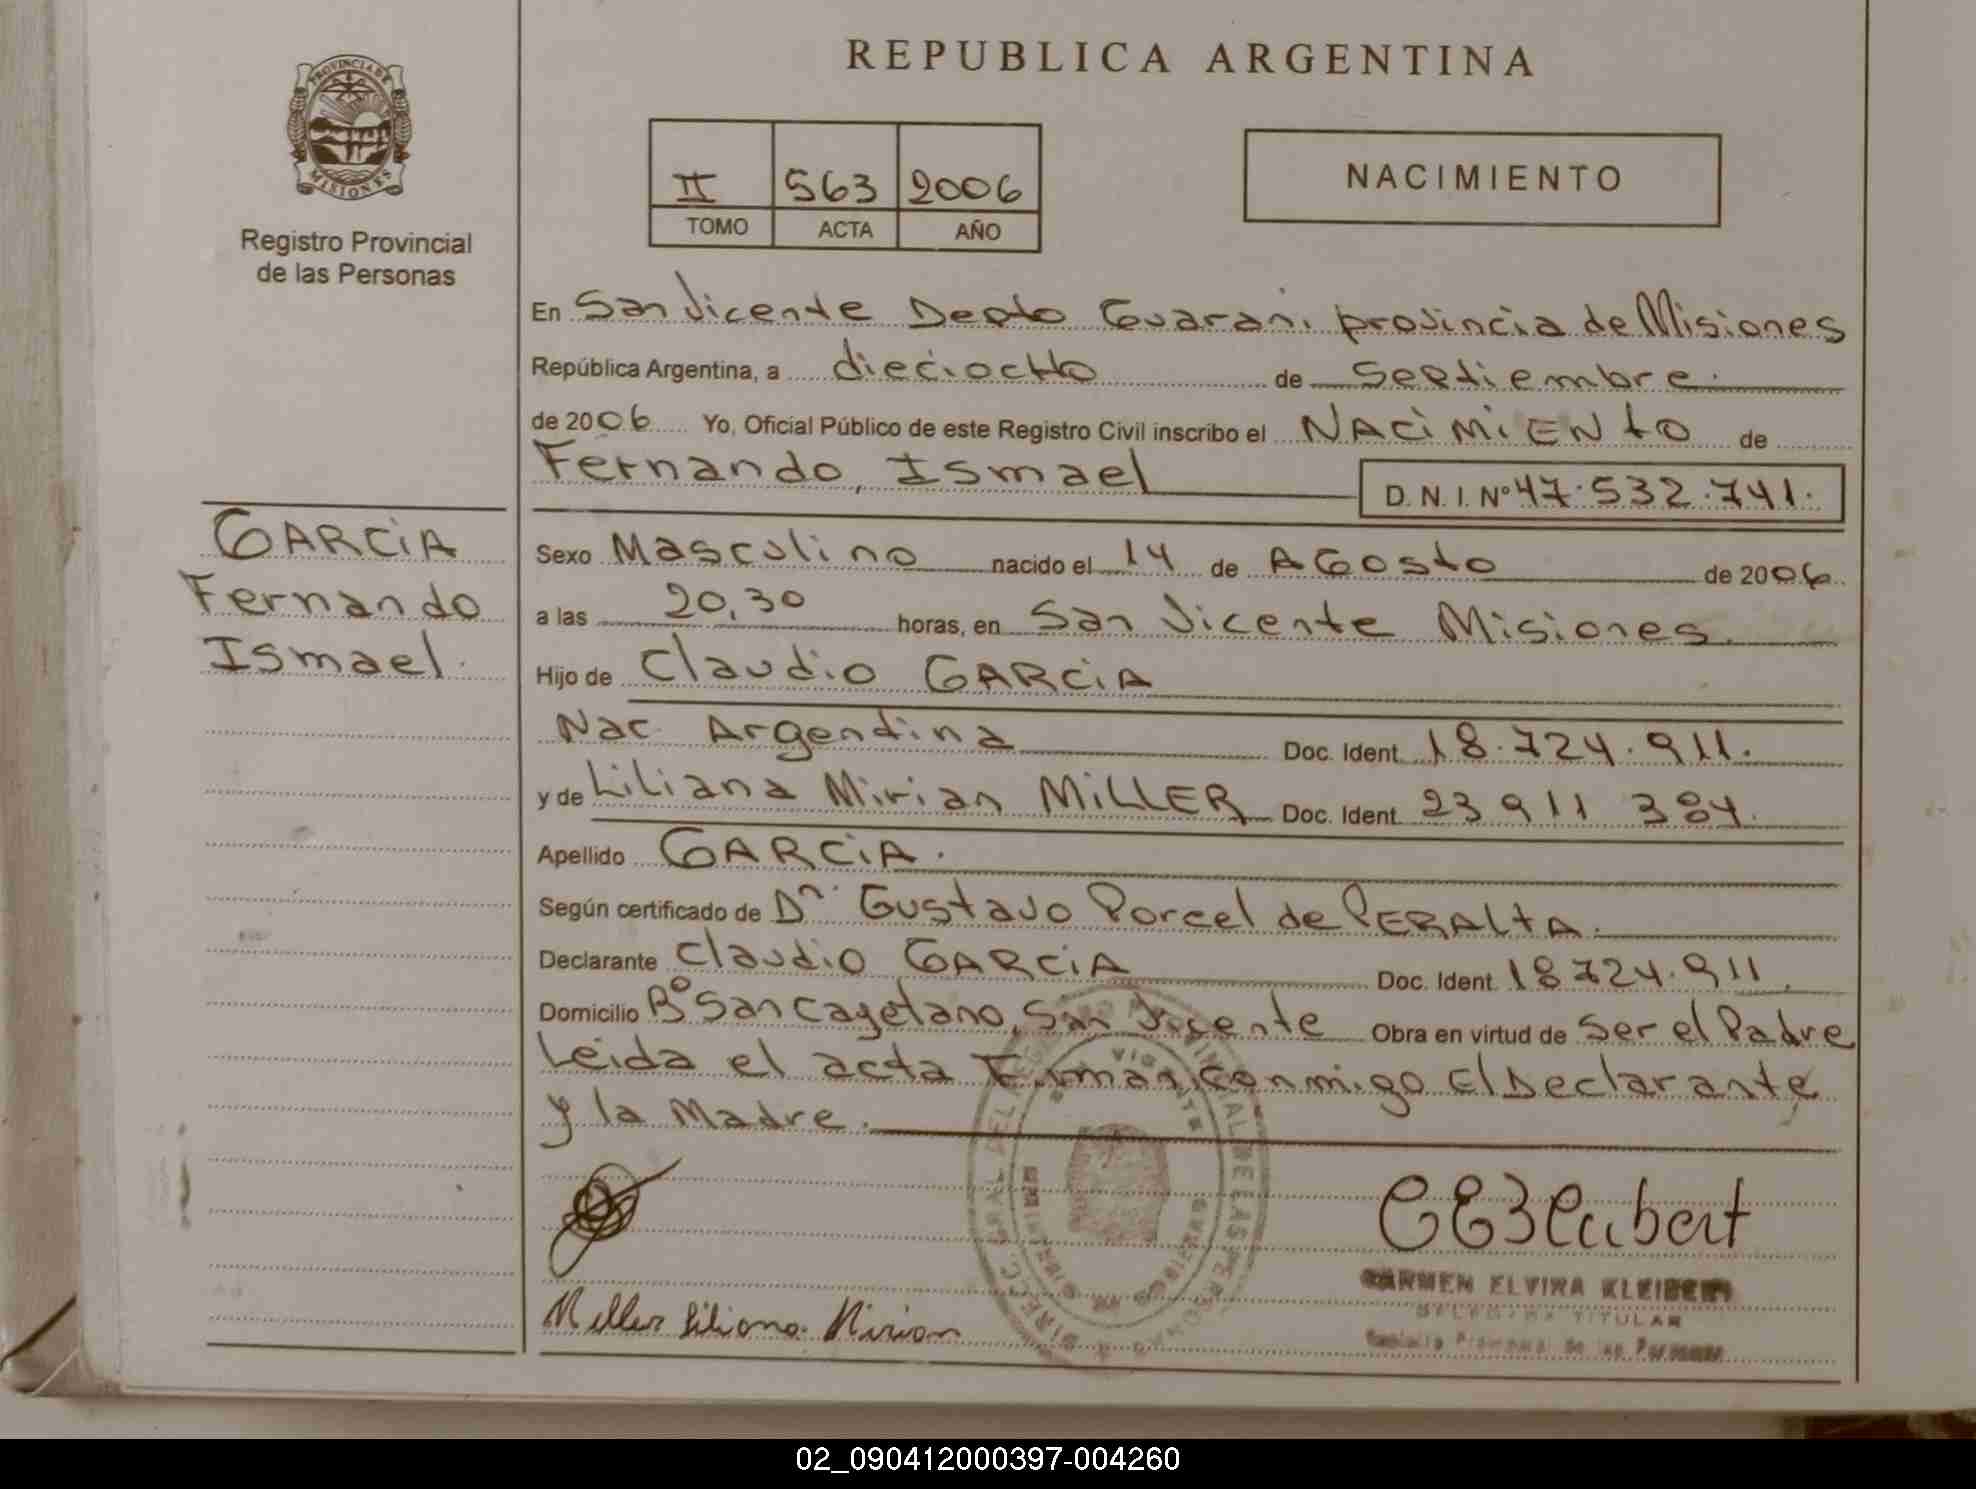 REPUBLICA ARGENTINA
PROVINCIA DE MISIONES
Registro Provincial
de las Personas
II 563 2006
TOMO ACTA AÑO
NACIMIENTO
En San Vicente Depto Guarani provincia de Misiones
República Argentina, a dieciocho de Septiembre.
de 2006 Yo, Oficial Público de este Registro Civil inscribo el NACIMIENTO de
Fernando, Ismael D. N. I. Nº 47.532.741.
GARCIA
Fernando
Ismael.
Sexo Masculino nacido el 14 de AGosto de 2006
a las 20,30 horas, en San Vicente Misiones.
Hijo de Claudio GARCIA
Nac. Argentina Doc. Ident. 18.724.911.
y de Liliana Mirian MILLER Doc. Ident. 23 911 384.
Apellido GARCIA.
Según certificado de Dr. Gustavo Porcel de PERALTA.
Declarante Claudio GARCIA Doc. Ident. 18724.911
Domicilio Bº San Cayetano, San Vicente Obra en virtud de Ser el Padre
Leida el acta Firman conmigo El Declarante
y la Madre.
Miller Liliana Mirian
CARMEN ELVIRA KLEIBERT
DELEGADA TITULAR
Registro Provincial de las Personas
02_090412000397-004260